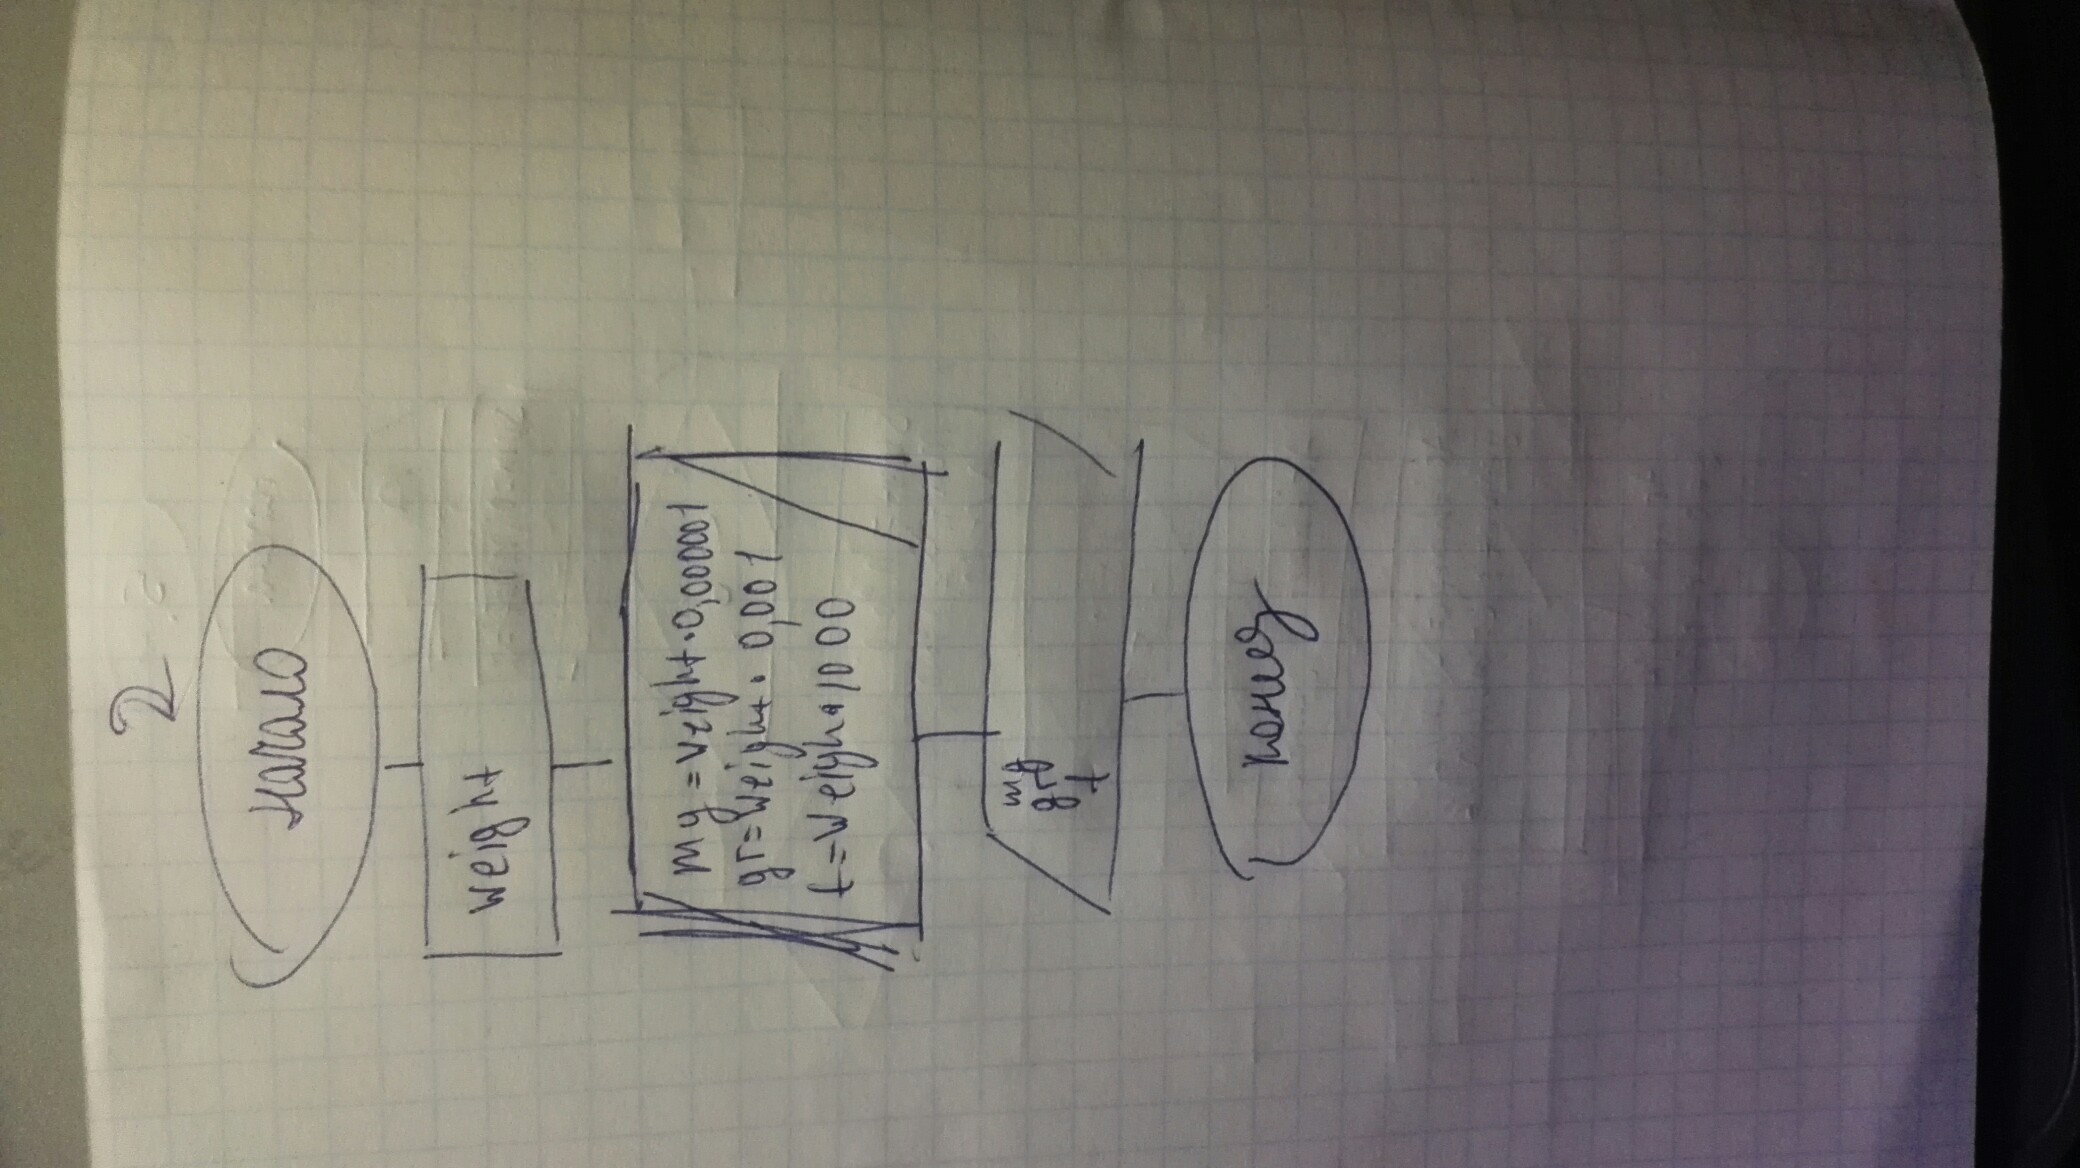 2
начало
weight
mg = weight · 0,000001
gr = weight · 0,001
t = weight · 1000
mg
gr
t
конец